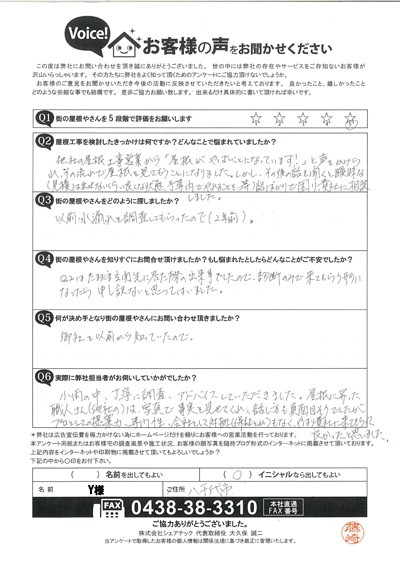 Voice!
お客様の声をお聞かせください
この度は弊社にお問い合わせを頂き誠にありがとうございました。世の中には弊社の存在やサービスをご存知ないお客様が
沢山いらっしゃいます。その方たちに弊社をよく知って頂くためのアンケートにご協力頂けないでしょうか。
お客様のご意見をお聞かせいただき今後の活動に反映させていただきたいと考えております。良かったこと、嬉しかったこと
どのような些細な事でも結構です。是非ご協力お願い致します。出来るだけ具体的に書いて頂ければ幸いです。
Q1 街の屋根やさんを5段階で評価をお願いします
☆ ☆ ☆ ☆ ☆
Q2 屋根工事を検討したきっかけは何ですか?どんなことで悩まれていましたか?
他社の屋根工事営業から「屋根がやばいことなっています!」と声をかけら
れ、その流れで屋根を見てもらうことになりました。しかし、その後の話を聞くと
しました。
Q3 街の屋根やさんをどのように探しましたか?
以前水漏れを調査してもらったので(2年前)。
Q4 街の屋根やさんを知りすぐにお問合せ頂けますか?もし悩まれたとしたらどんなことがご不安でしたか?
Q2はたまたま玄関先に居た際の出来事でしたので、診断のみで来てもらう形に
なったら申し訳ないと思ってはいました。
Q5 何が決め手となり街の屋根やさんにお問い合わせ頂きましたか?
御社を以前から知っていたので。
Q6 実際に弊社担当者がお伺いしていかがでしたか?
小雨の中、丁寧に調査、アドバイスしていただきました。屋根に昇った
職人さん(他社の)は、写真で事実を見せてくれ、話し方も真面目そうでしたが、
プロとしての提案力、専門性、
よかったと思いました。
＊弊社は広告宣伝費を極力かけない為にホームページだけを頼りにお客様への営業活動を行っております。
本アンケート用紙またはお客様宅での調査風景や施工状況、お客様の顔写真を随時ブログ形式のインターネットに掲載させて頂いております。
上記内容をインターネットや印刷物に掲載させて頂いてもよろしいでしょうか?
下記の中から〇印をお付け下さい。
( )名前を出してもよい (○)イニシャルなら出してもよい
名前 Y様 ご住所 八千代市
FAX 0438-38-3310 本社直通 FAX番号
ご協力ありがとうございました。
株式会社シェアテック 代表取締役 大久保 誠二
当アンケートで取得したお客様の個人情報は関係法規に基づき厳正に管理いたします。